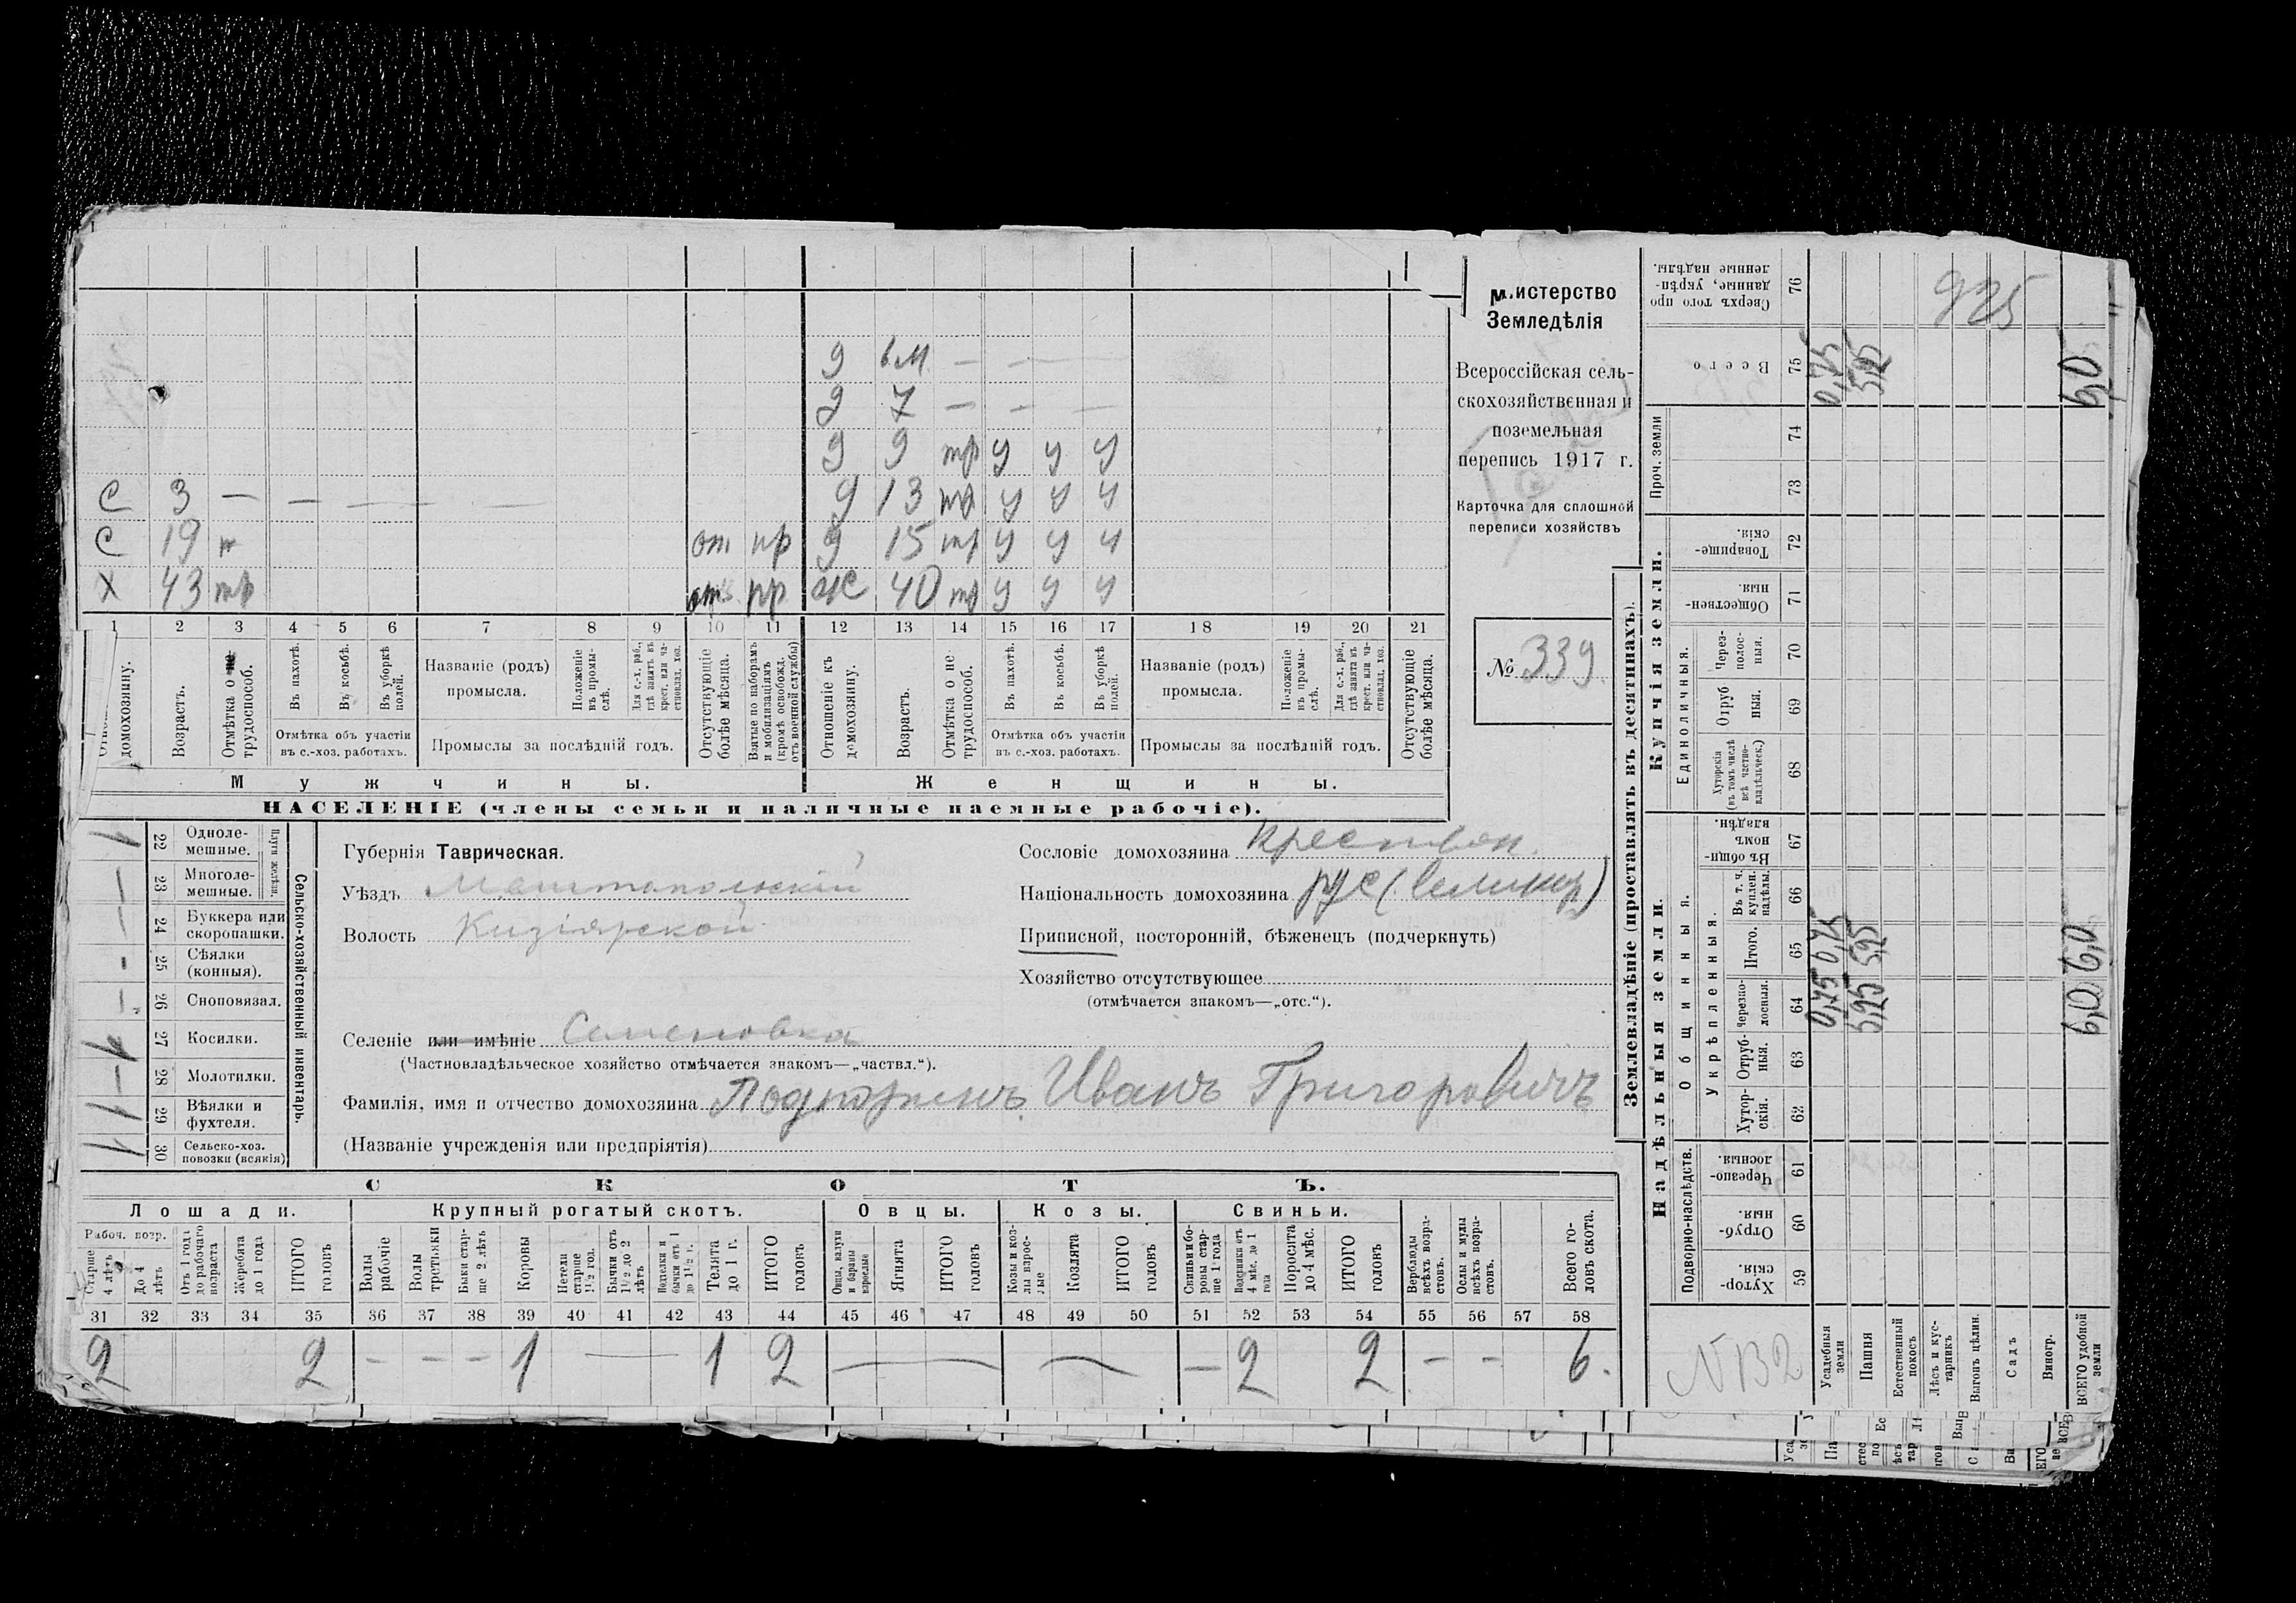 9 6м — — —
д 7 — — —
д 9 тр у у у
С 3 — — — — — д 13 тр у у у
С 19 т от пр д 15 тр у у у
Х 43 тр отс. пр ж 40 тр у у у
1 2 3 4 5 6 7 8 9 10 11 12 13 14 15 16 17 18 19 20 21
домохозяину.
Возрастъ.
Отмѣтка о не трудоспособ.
Въ пахотѣ.
Въ косьбѣ.
Въ уборкѣ полей.
Отмѣтка объ участіи въ с.-хоз. работахъ.
Названіе (родъ) промысла.
Положеніе въ промыслѣ.
Для с.-х. раб., гдѣ занятъ въ крест. или частновлад. хоз.
Промыслы за послѣдній годъ.
Отсутствующіе болѣе мѣсяца.
Взятые по наборамъ и мобилизаціямъ (кромѣ освобожд. отъ военной службы)
Отношеніе къ домохозяину.
Возрастъ.
Отмѣтка о не трудоспособ.
Въ пахотѣ.
Въ косьбѣ.
Въ уборкѣ полей.
Отмѣтка объ участіи въ с.-хоз. работахъ.
Названіе (родъ) промысла.
Положеніе въ промыслѣ.
Для с.-х. раб., гдѣ занята въ крест. или частновлад. хоз.
Промыслы за послѣдній годъ.
Отсутствующіе болѣе мѣсяца.
Мужчины.
Женщины.
НАСЕЛЕНІЕ (члены семьи и наличные наемные рабочіе).
истерство
Земледѣлія
Всероссійская сель-
скохозяйственная и
поземельная
перепись 1917 г.
Карточка для сплошной
переписи хозяйствъ
№ 339
Сельско-хозяйственный инвентарь.
Плуги желѣзн.
22 Одноле-мешные. 1
23 Многоле-мешные. —
24 Буккера или скоропашки. —
25 Сѣялки (конныя). -
26 Сноповязал. —
27 Косилки. 1
28 Молотилки. —
29 Вѣялки и фухтеля. 1
30 Сельско-хоз. повозки (всякія) 1
Губернія Таврическая.
Уѣздъ Мелитопольскій
Волость Кизіярской
Селеніе или имѣніе Семеновка
(Частновладѣльческое хозяйство отмѣчается знакомъ—„частвл.“).
Сословіе домохозяина крестьян.
Національность домохозяина рус (великор)
Приписной, посторонній, бѣженецъ (подчеркнуть)
Хозяйство отсутствующее
(отмѣчается знакомъ—„отс.“).
Фамилія, имя и отчество домохозяина Иванъ Григоровичъ
(Названіе учрежденія или предпріятія)
СКОТЪ.
Лошади. Крупный рогатый скотъ. Овцы. Козы. Свиньи.
Рабоч. возр.
Старше 4 лѣтъ
До 4 лѣтъ
Отъ 1 года до рабочаго возраста
Жеребята до 1 года
ИТОГО головъ
Волы рабочіе
Волы третьяки
Быки старше 2 лѣтъ
Коровы
Нетели старше 1½ год.
Бычки отъ 1½ до 2 лѣтъ
Нетелки и бычки отъ 1 до 1½ г.
Телята до 1 г.
ИТОГО головъ
Овцы, валухи и бараны взрослые
Ягнята
ИТОГО головъ
Козы и козлы взрослые
Козлята
ИТОГО головъ
Свиньи и боровы старше 1 года
Подсвинки отъ 4 мѣс. до 1 года
Поросята до 4 мѣс.
ИТОГО головъ
Верблюды всѣхъ возрастовъ.
Ослы и мулы всѣхъ возрастовъ.
Всего головъ скота.
31 32 33 34 35 36 37 38 39 40 41 42 43 44 45 46 47 48 49 50 51 52 53 54 55 56 57 58
2 2 - - - 1 — 1 2 — — — 2 2 - - 6.
Землевладѣніе (проставлять въ десятинахъ).
Надѣльныя земли.
Купчія земли.
Проч. земли
Подворно-наслѣдств.
Общинныя.
Укрѣпленныя.
Единоличныя.
59 Хутор-скія.
60 Отруб-ныя.
61 Черезпо-лосныя.
62 Хутор-скія.
63 Отруб-ныя.
64 Черезпо-лосныя.
65 Итого.
66 Въ т. ч. куплен. надѣлы.
67 Въ общи-номъ владѣн.
68 Хуторскія (въ томъ числѣ всѣ частно-владѣльческ.)
69 Отруб ныя.
70 Через-полос-ныя.
71 Обществен-ныя
72 Товарище-скія.
73
74
75 Всего
76 Сверхъ того про данные, укрѣп-ленные надѣлы.
Усадебныя земли 0,75 0,75 0,75
Пашня 5,25 5,25 5,25
Естественный покосъ
Лѣсъ и кус-тарникъ
Выгонъ цѣлин.
Садъ
Виногр.
ВСЕГО удобной земли 6,0 6,0 6,0
925
№ В2